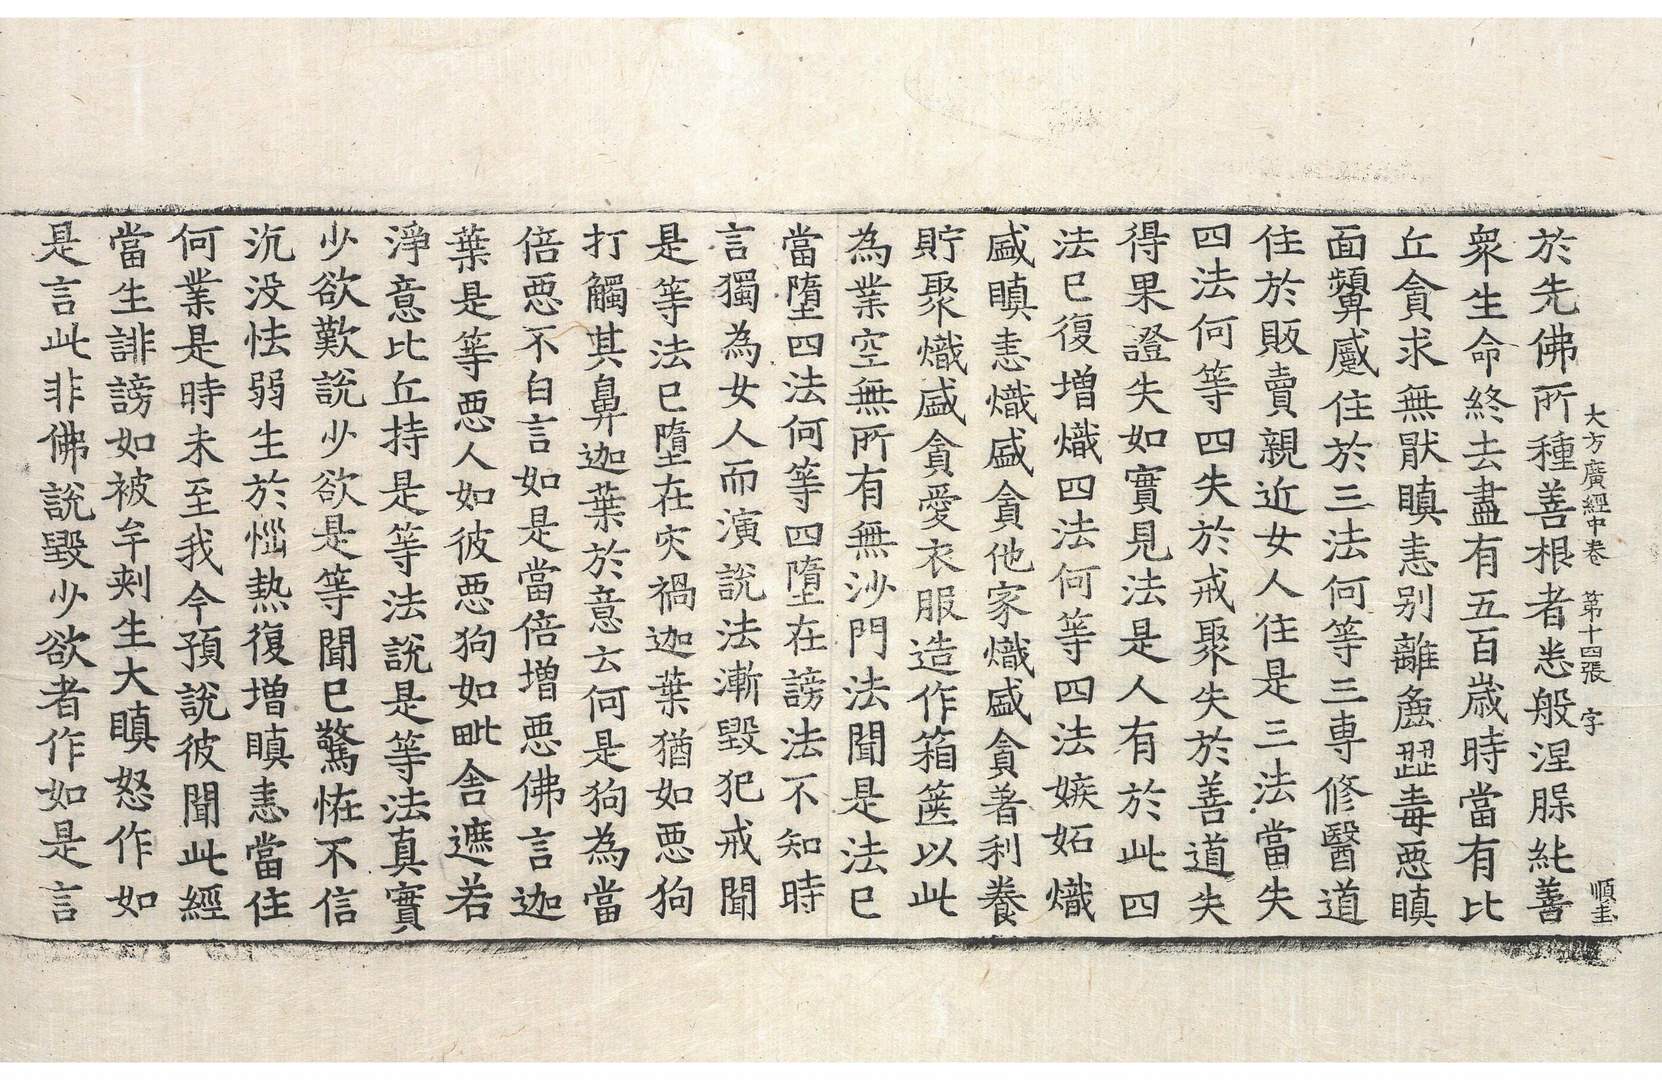 大方廣經中卷　第十四張　字　順圭
於先佛所種善根者悉般涅脲純善
衆生命終去盡有五百歲時當有比
丘貪求無猒瞋恚别離麁澀毒惡瞋
面顰蹙住於三法何等三専修醫道
住於販賣親近女人住是三法當失
四法何等四失於戒聚失於善道失
得果證失如實見法是人有於此四
法巳復増熾四法何等四法嫉妬熾
盛瞋恚熾盛貪他家熾盛貪著利養
貯聚熾盛貪愛衣服造作箱篋以此
為業空無所有無沙門法聞是法巳
當墮四法何等四墮在謗法不知時
言獨為女人而演說法漸毀犯戒聞
是等法巳墮在灾禍迦葉猶如惡狗
打觸其鼻迦葉於意云何是狗為當
倍惡不白言如是當倍増惡佛言迦
葉是等惡人如彼惡狗如毗舍遮若
淨意比丘持是等法說是等法真實
少欲歎說少欲是等聞巳驚恠不信
沉没怯弱生於惱熱復増瞋恚當住
何業是時未至我今預說彼聞此經
當生誹謗如被牟刾生大瞋怒作如
是言此非佛說毀少欲者作如是言